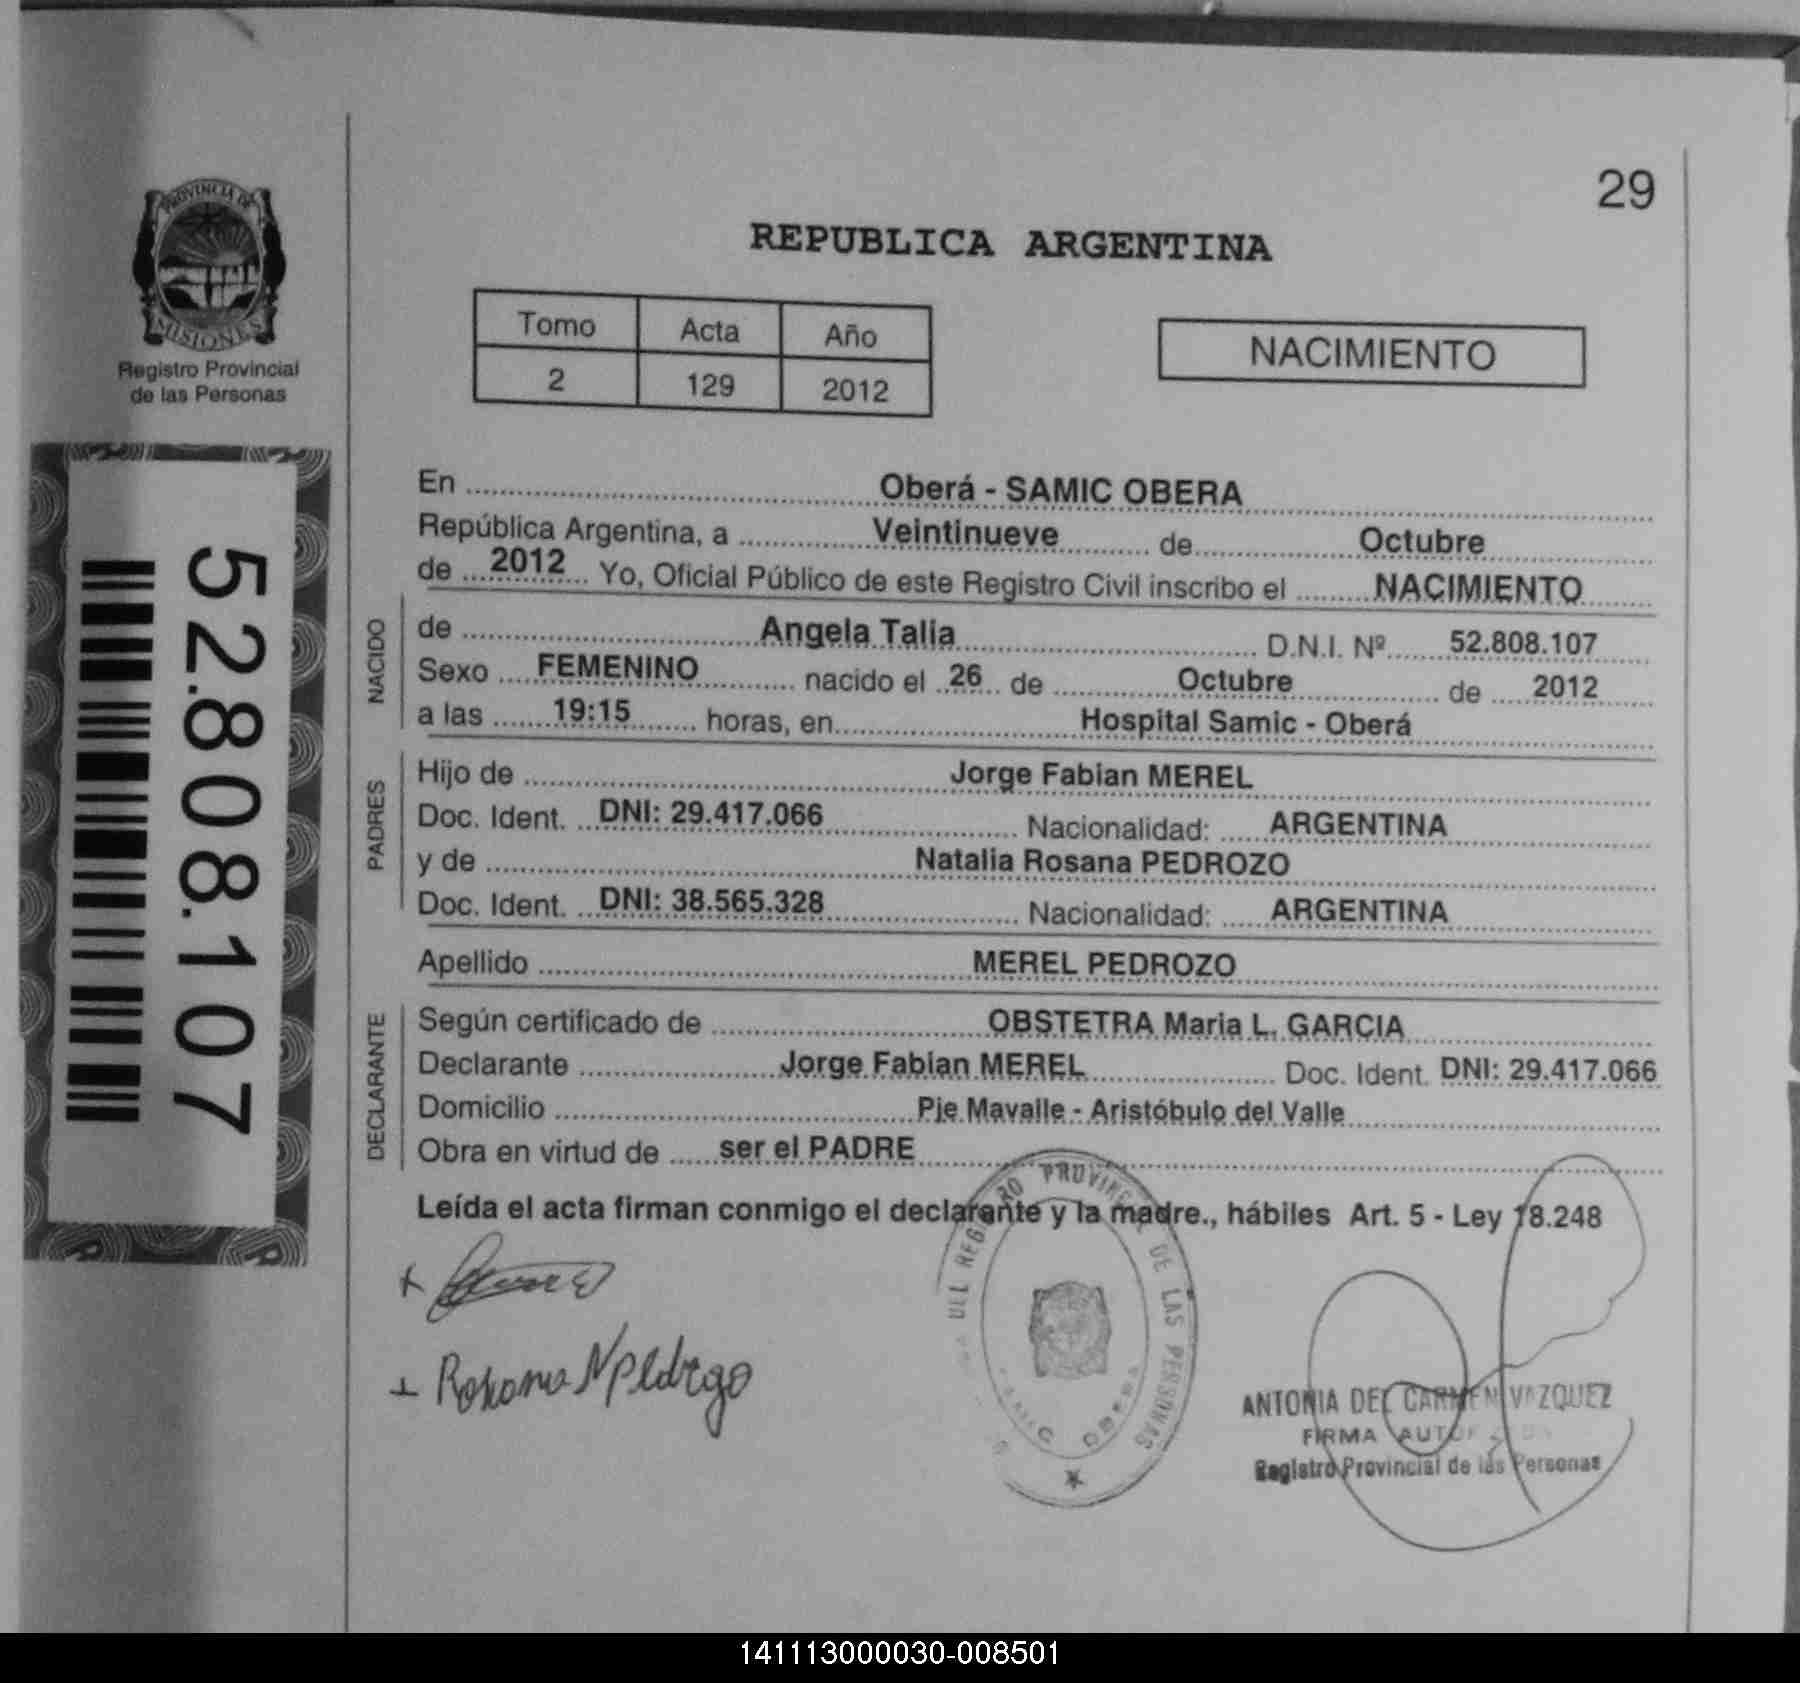 29
PROVINCIA DE
MISIONES
Registro Provincial
de las Personas
REPUBLICA ARGENTINA
Tomo Acta Año
2 129 2012
NACIMIENTO
52.808.107
En Oberá - SAMIC OBERA
República Argentina, a Veintinueve de Octubre
de 2012 Yo, Oficial Público de este Registro Civil inscribo el NACIMIENTO
NACIDO
de Angela Talia D.N.I. Nº 52.808.107
Sexo FEMENINO nacido el 26 de Octubre de 2012
a las 19:15 horas, en Hospital Samic - Oberá
PADRES
Hijo de Jorge Fabian MEREL
Doc. Ident. DNI: 29.417.066 Nacionalidad: ARGENTINA
y de Natalia Rosana PEDROZO
Doc. Ident. DNI: 38.565.328 Nacionalidad: ARGENTINA
Apellido MEREL PEDROZO
DECLARANTE
Según certificado de OBSTETRA Maria L. GARCIA
Declarante Jorge Fabian MEREL Doc. Ident. DNI: 29.417.066
Domicilio Pje Mavalle - Aristóbulo del Valle
Obra en virtud de ser el PADRE
Leída el acta firman conmigo el declarante y la madre., hábiles Art. 5 - Ley 18.248
DEL REGISTRO PROVINCIAL DE LAS PERSONAS
SAMIC OBERA
ANTONIA DEL CARMEN VAZQUEZ
FIRMA
Registro Provincial de las Personas
141113000030-008501